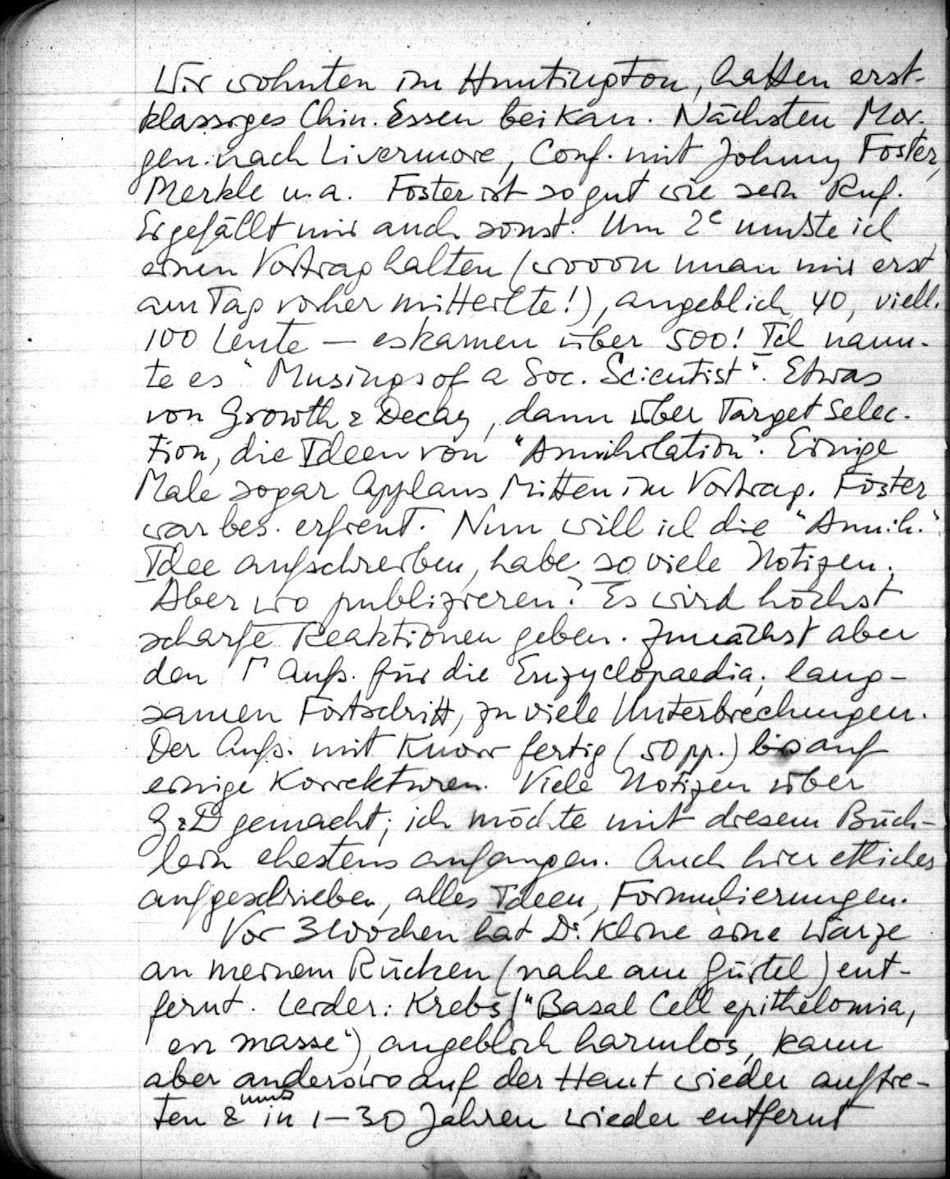 Wir wohnten im Huntington, hatten erst-
klassiges Chin. Essen bei Kan. Nächsten Mor-
gen nach Livermore, Conf. mit Johnny Foster,
Merkle u.a. Foster ist so gut wie sein Ruf.
Er gefällt mir auch sonst. Um 2ᶜ mußte ich
einen Vortrag halten (wovon man mir erst
am Tag vorher mitteilte!), angeblich 40, viell.
100 Leute – es kamen über 500! Ich nann-
te es "Musings of a Soc. Scientist". Etwas
von Growth & Decay, dann über Target Selec-
tion, die Ideen von "Annihilation". Einige
Male sogar Applaus mitten im Vortrag. Foster
war bes. erfreut. Nun will ich die "Annih."
Idee aufschreiben, habe so viele Notizen.
Aber wo publizieren? Es wird höchst
scharfe Reaktionen geben. Zunächst aber
den Γ Aufs. für die Enzyclopaedia; lang-
samen Fortschritt, zu viele Unterbrechungen.
Der Aufs. mit Knorr fertig (50 pp.) bis auf
einige Korrekturen. Viele Notizen über
G&D gemacht; ich möchte mit diesem Büch-
lein ehestens anfangen. Auch hier etliches
aufgeschrieben, alles Ideen, Formulierungen.
Vor 3 Wochen hat Dr. Kline eine Warze
an meinem Rücken (nahe am Gürtel) ent-
fernt. Leider: Krebs ("Basal Cell epithelomia,
en masse"), angeblich harmlos, kann
aber anderswo auf der Haut wieder auftre-
ten & muß in 1–30 Jahren wieder entfernt